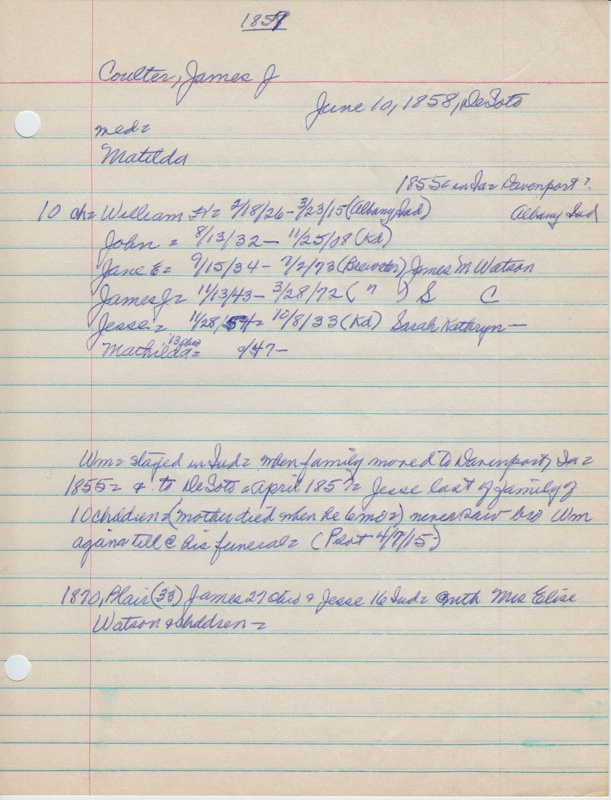 1857
Coulter, James J
June 10, 1858, DeSoto
med=
Matilda
1855= in Ia= Davenport?
10 ch= William = 2/18/26 - 3/23/15 (Albany Ind) Albany Ind
John = 8/13/32 - 11/25/08 (Kd)
Jane E= 9/15/34 - 7/2/73 (Brewster) James M Watson
James J= 11/13/43 - 3/28/72 ( " ) S C
Jesse = 11/28/54 = 10/8/33 (Kd) Sarah Kathryn -
13 Ohio
Mathilda = /47 -
Wm= stayed in Ind= when family moved to Davenport, Ia=
1855= & to DeSoto = April 1857= Jesse last of family of
10 children = (mother died when he 6 mo=) never saw bro Wm
again till @ his funeral = (Pilot 4/7/15)
1870, Blair (33) James 27 Ohio & Jesse 16 Ind= with Mrs Elise
Watson & children =